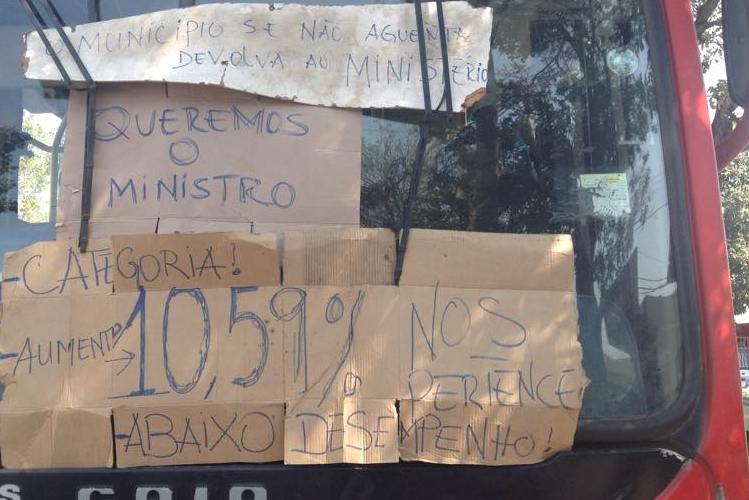 O MUNICÍPIO SE NÃO AGUENTA
DEVOLVA AO MINISTÉRIO
QUEREMOS
O
MINISTRO
-CATEGORIA!
-AUMENTO → 10,59% NOS
PERIENCE
-ABAIXO DESEMPENHO!